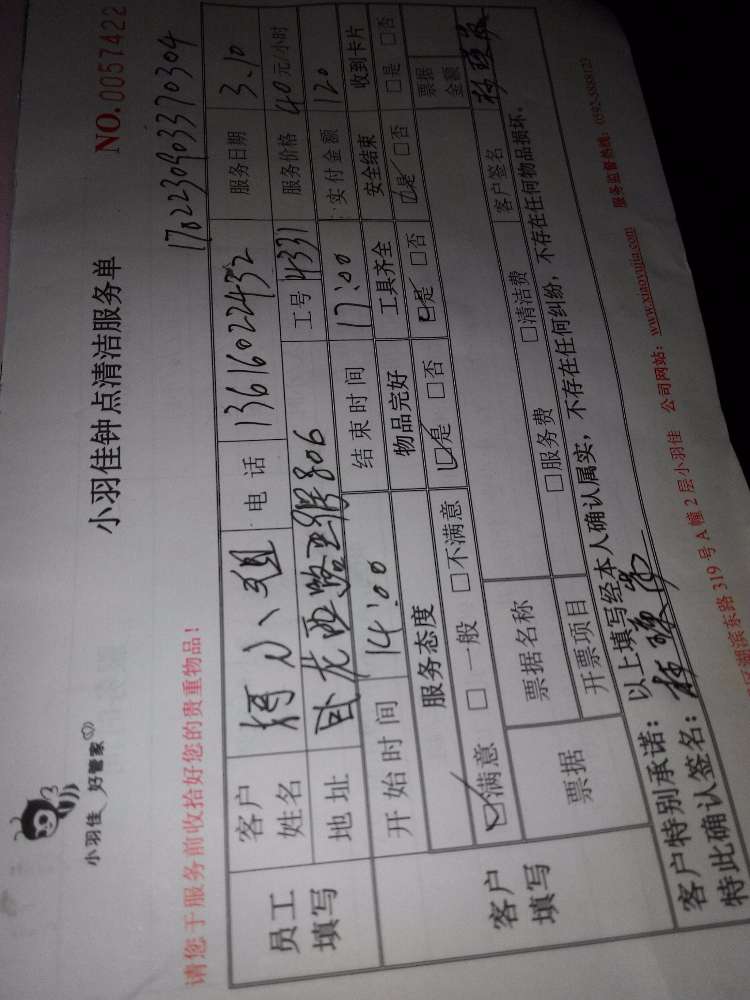 小羽佳 好管家
小羽佳钟点清洁服务单
NO.0057422
请您于服务前收拾好您的贵重物品!
17022309033 70304
员工填写
客户姓名 小姐 电话 13616022432 服务日期 3.10
地址 工号 4331 服务价格 40元/小时
开始时间 14:00 结束时间 17:00 实付金额 120
客户填写
服务态度 物品完好 工具齐全 安全结束 收到卡片
☑满意 □一般 □不满意 ☑是 □否 ☑是 □否 ☑是 □否 □是 □否
票据 票据名称 票据金额
开票项目 □服务费 □清洁费 客户签名
客户特别承诺: 以上填写经本人确认属实,不存在任何纠纷,不存在任何物品损坏。
特此确认签名:
湖滨东路319号A幢2层小羽佳 公司网站: www.xiaoyujia.com 服务监督热线: 0592-8888122